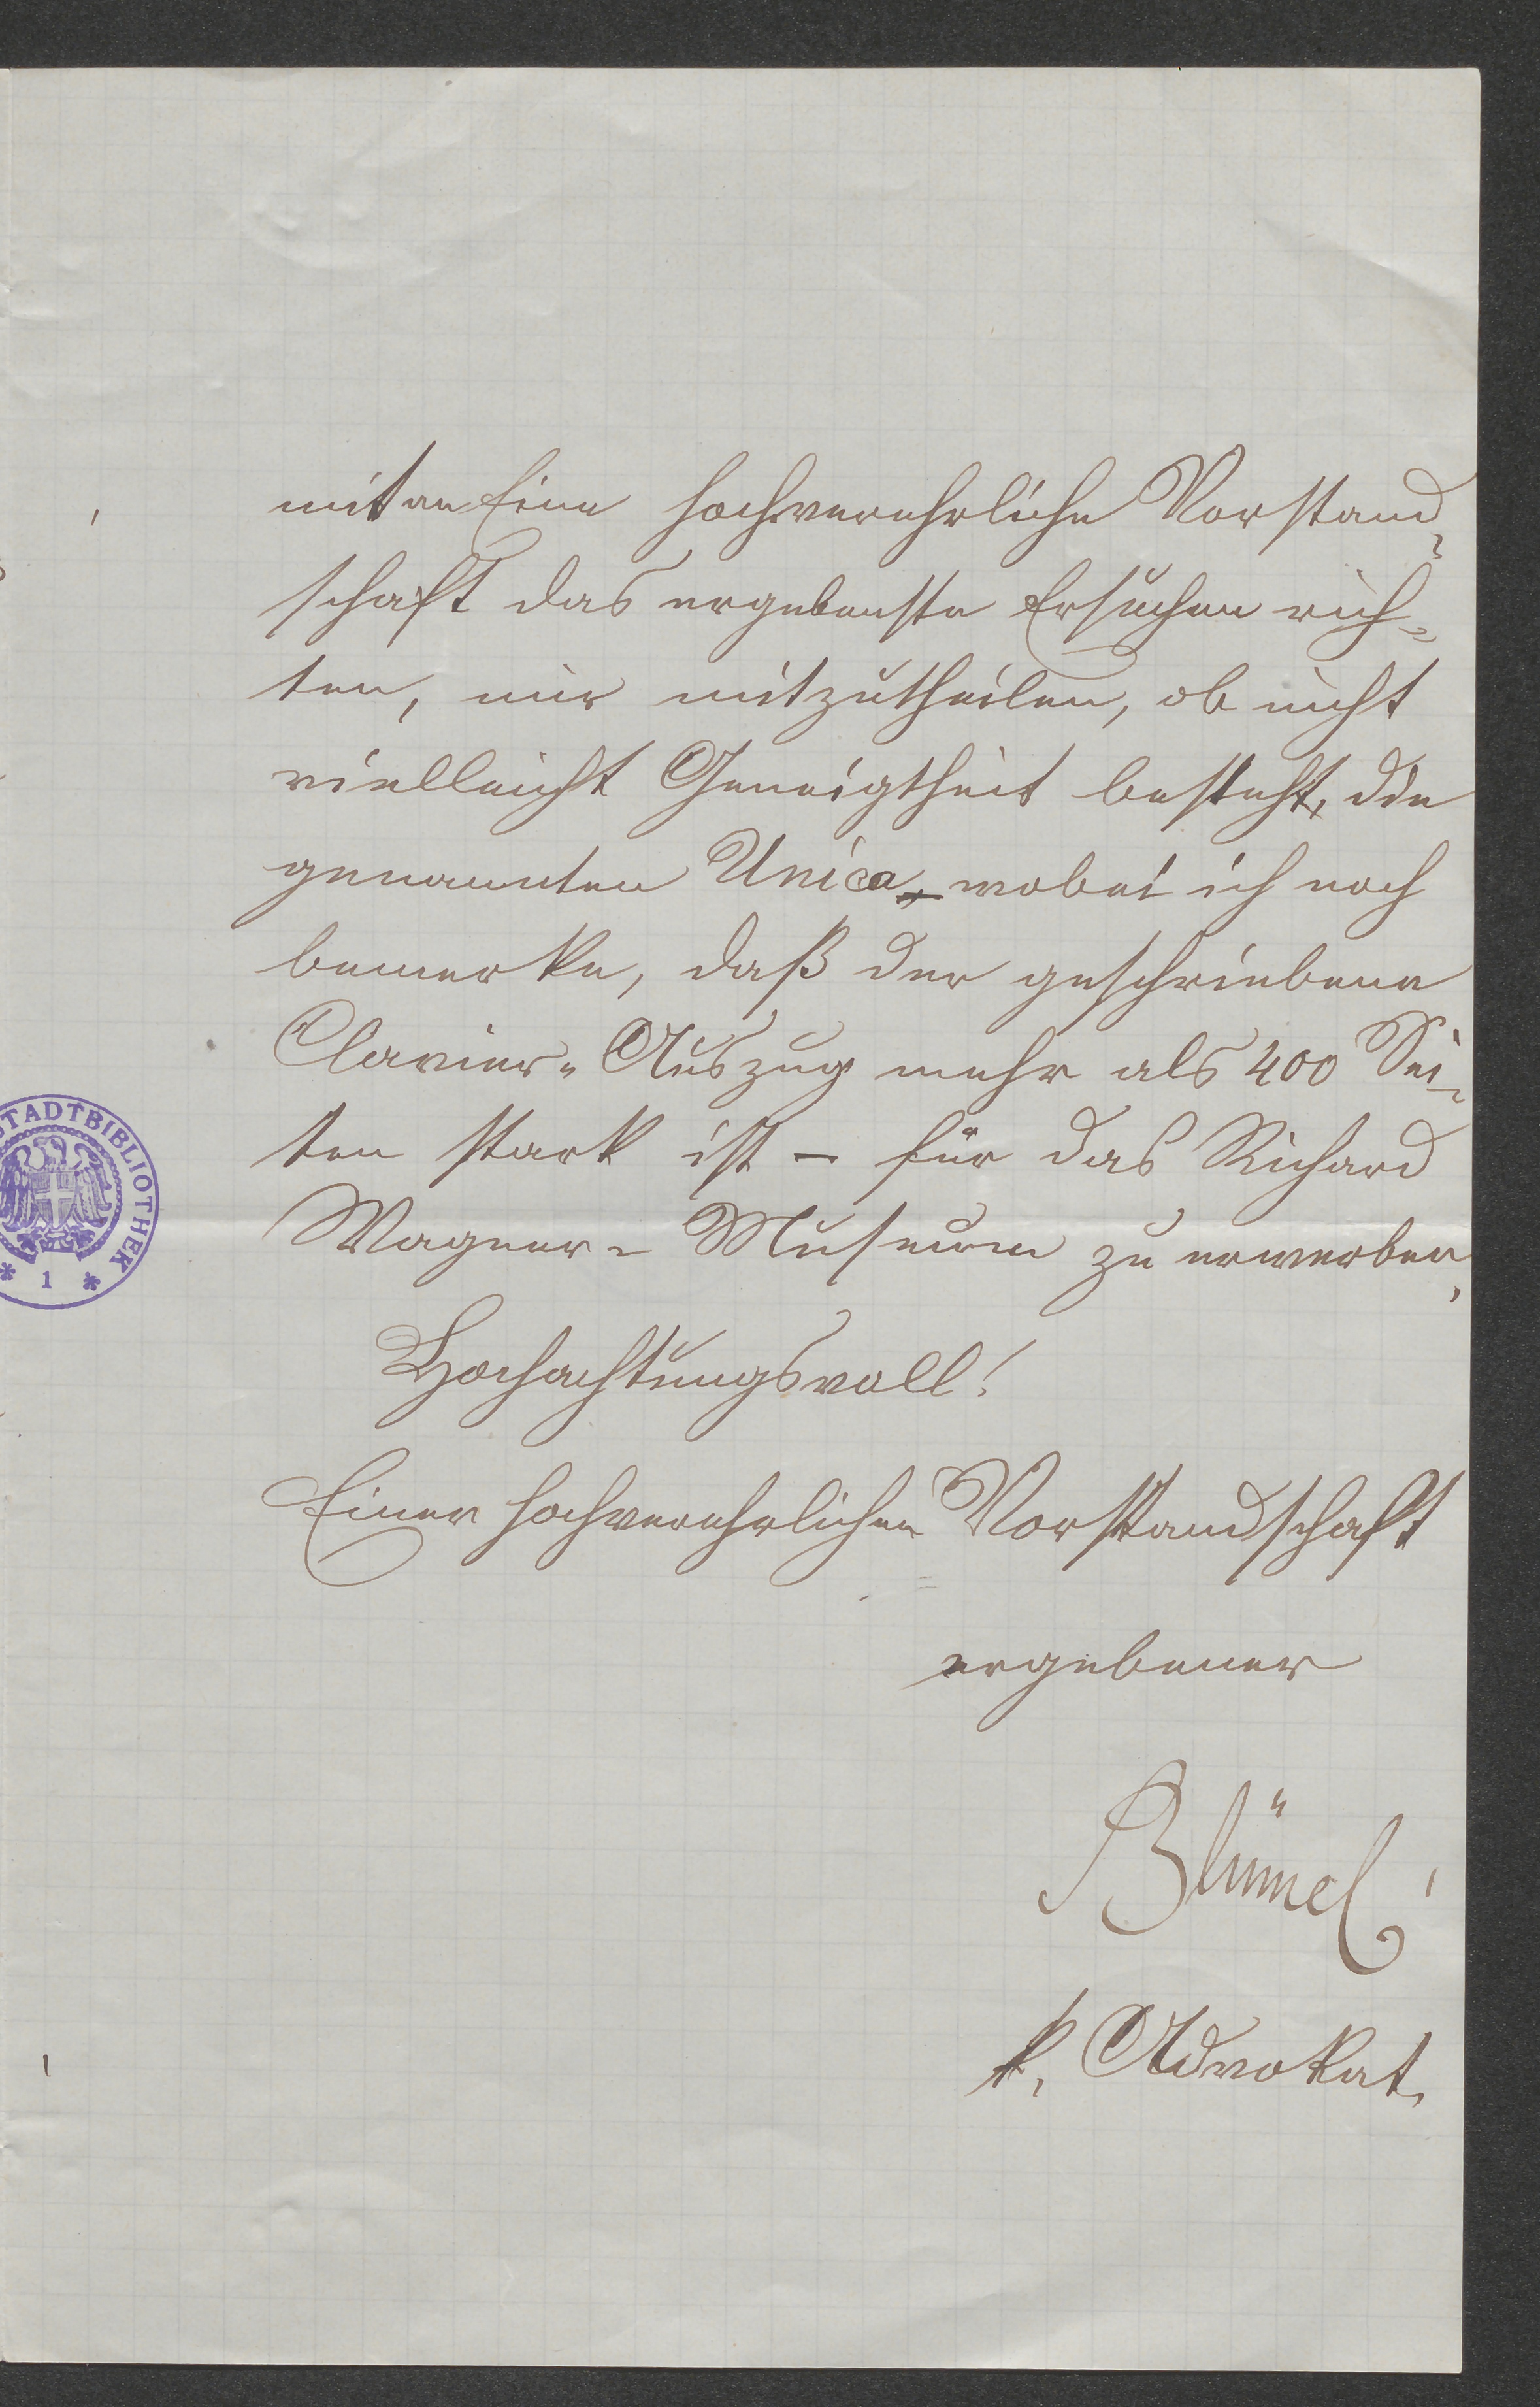 mit an Eine hochverehrliche Vorstand-
schaft das ergebenste Ersuchen rich-
ten, mir mitzutheilen, ob nicht
vielleicht Geneigtheit besteht, die
genannten Unica, – wobei ich noch
bemerke, daß der geschriebene
Clavier-Auszug mehr als 400 Sei-
ten stark ist – für das Richard
Wagner-Museum zu erwerben.
Hochachtungsvoll!
Einer hochverehrlichen Vorstandschaft
ergebener
Blümel
k. Advokat.
STADTBIBLIOTHEK
* 1 *